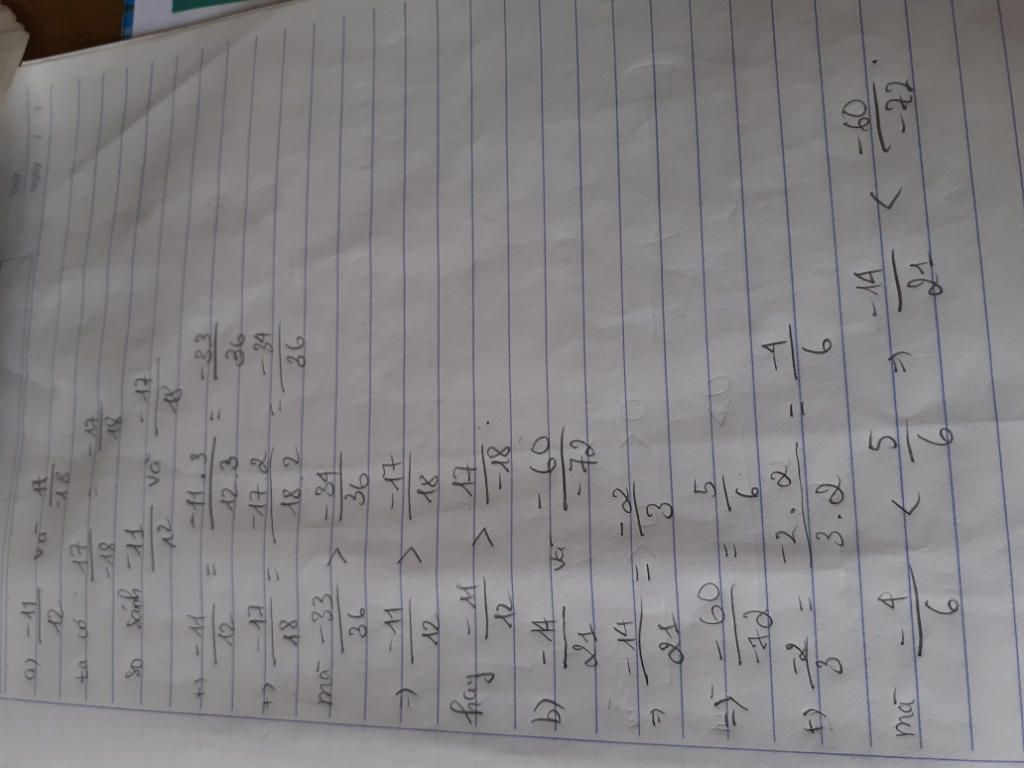 a) -11/12 và 17/-18
ta có 17/-18 = -17/18
so sánh -11/12 và -17/18
+) -11/12 = -11.3/12.3 = -33/36
+) -17/18 = -17.2/18.2 = -34/36
mà -33/36 > -34/36
=) -11/12 > -17/18
hay -11/12 > 17/-18.
b) -14/21 và -60/-72
=) -14/21 => -2/3
+=) -60/-72 = 5/6
+) -2/3 = -2.2/3.2 = 4/6
mà -4/6 < 5/6 =) -14/21 < -60/-72.